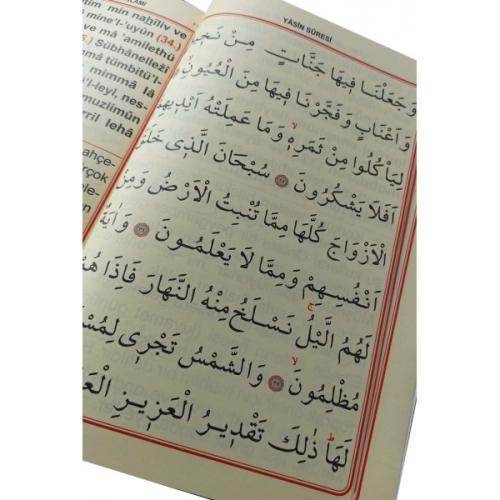 LAMI
tim min naḥîliv ve
mine'l-'uyûn (34.)
ve mâ 'amilethü
Sübhânelleżî
tümbitü'l-
mimmâ lâ
'l-leyl, nes-
muzlimûn
rril lehâ
ahçe-
rçok
YÂSÎN SÛRESİ
وَجَعَلْنَا فِيهَا جَنَّاتٍ مِنْ نَخ
وَاَعْنَابٍ وَفَجَّرْنَا فِيهَا مِنَ الْعُيُونِ
لِيَأْكُلُوا مِنْ ثَمَرِهٖ وَمَا عَمِلَتْهُ اَيْدٖيهِمْ
اَفَلَا يَشْكُرُونَ ﴿٣٥﴾ سُبْحَانَ الَّذٖى خَلَقَ
الْاَزْوَاجَ كُلَّهَا مِمَّا تُنْبِتُ الْاَرْضُ وَمِنْ
اَنْفُسِهِمْ وَمِمَّا لَا يَعْلَمُونَ ﴿٣٦﴾ وَاٰيَةٌ
لَهُمُ الَّيْلُ نَسْلَخُ مِنْهُ النَّهَارَ فَاِذَا هُمْ
مُظْلِمُونَ ﴿٣٧﴾ وَالشَّمْسُ تَجْرٖى لِمُسْ
لَهَا ذٰلِكَ تَقْدٖيرُ الْعَزٖيزِ الْعَ